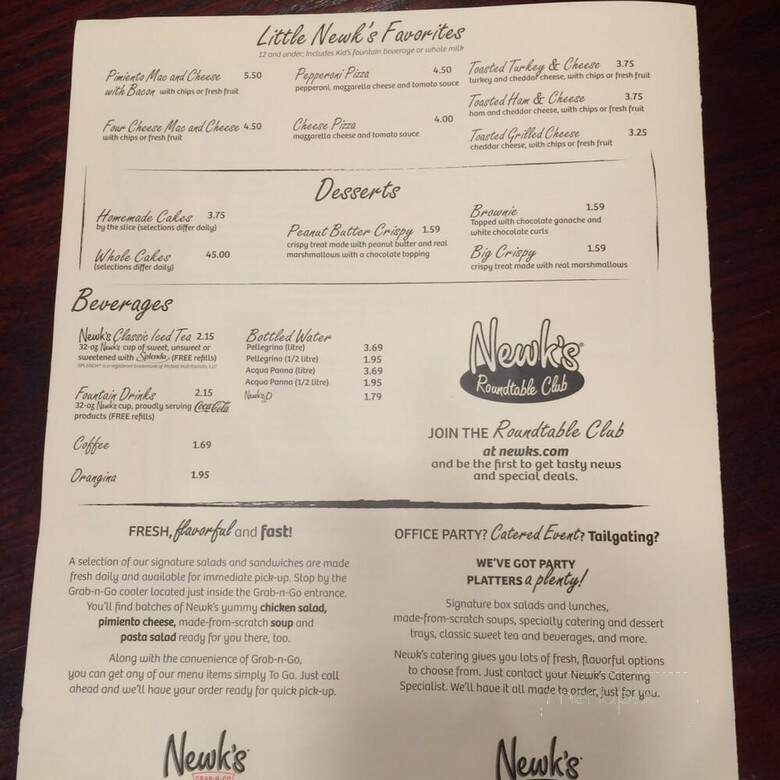 Little Newk's Favorites
12 and under; Includes Kid's fountain beverage or whole milk
Pimiento Mac and Cheese 5.50
with Bacon with chips or fresh fruit
Four Cheese Mac and Cheese 4.50
with chips or fresh fruit
Pepperoni Pizza 4.50
pepperoni, mozzarella cheese and tomato sauce
Cheese Pizza 4.00
mozzarella cheese and tomato sauce
Toasted Turkey & Cheese 3.75
turkey and cheddar cheese, with chips or fresh fruit
Toasted Ham & Cheese 3.75
ham and cheddar cheese, with chips or fresh fruit
Toasted Grilled Cheese 3.25
cheddar cheese, with chips or fresh fruit
Desserts
Homemade Cakes 3.75
by the slice (selections differ daily)
Whole Cakes 45.00
(selections differ daily)
Peanut Butter Crispy 1.59
crispy treat made with peanut butter and real
marshmallows with a chocolate topping
Brownie 1.59
Topped with chocolate ganache and
white chocolate curls
Big Crispy 1.59
crispy treat made with real marshmallows
Beverages
Newk's Classic Iced Tea 2.15
32-oz Newk's cup of sweet, unsweet or
sweetened with Splenda (FREE refills)
SPLENDA® is a registered trademark of McNeil Nutritionals, LLC
Fountain Drinks 2.15
32-oz Newk's cup, proudly serving Coca-Cola
products (FREE refills)
Coffee 1.69
Orangina 1.95
Bottled Water
Pellegrino (litre) 3.69
Pellegrino (1/2 litre) 1.95
Acqua Panna (litre) 3.69
Acqua Panna (1/2 litre) 1.95
Newk2O 1.79
Newk's®
Roundtable Club
JOIN THE Roundtable Club
at newks.com
and be the first to get tasty news
and special deals.
FRESH, flavorful and fast!
A selection of our signature salads and sandwiches are made
fresh daily and available for immediate pick-up. Stop by the
Grab-n-Go cooler located just inside the Grab-n-Go entrance.
You'll find batches of Newk's yummy chicken salad,
pimiento cheese, made-from-scratch soup and
pasta salad ready for you there, too.
Along with the convenience of Grab-n-Go,
you can get any of our menu items simply To Go. Just call
ahead and we'll have your order ready for quick pick-up.
Newk's
GRAB-N-GO
OFFICE PARTY? Catered Event? Tailgating?
WE'VE GOT PARTY
PLATTERS a plenty!
Signature box salads and lunches,
made-from-scratch soups, specialty catering and dessert
trays, classic sweet tea and beverages, and more.
Newk's catering gives you lots of fresh, flavorful options
to choose from. Just contact your Newk's Catering
Specialist. We'll have it all made to order, just for you.
Newk's